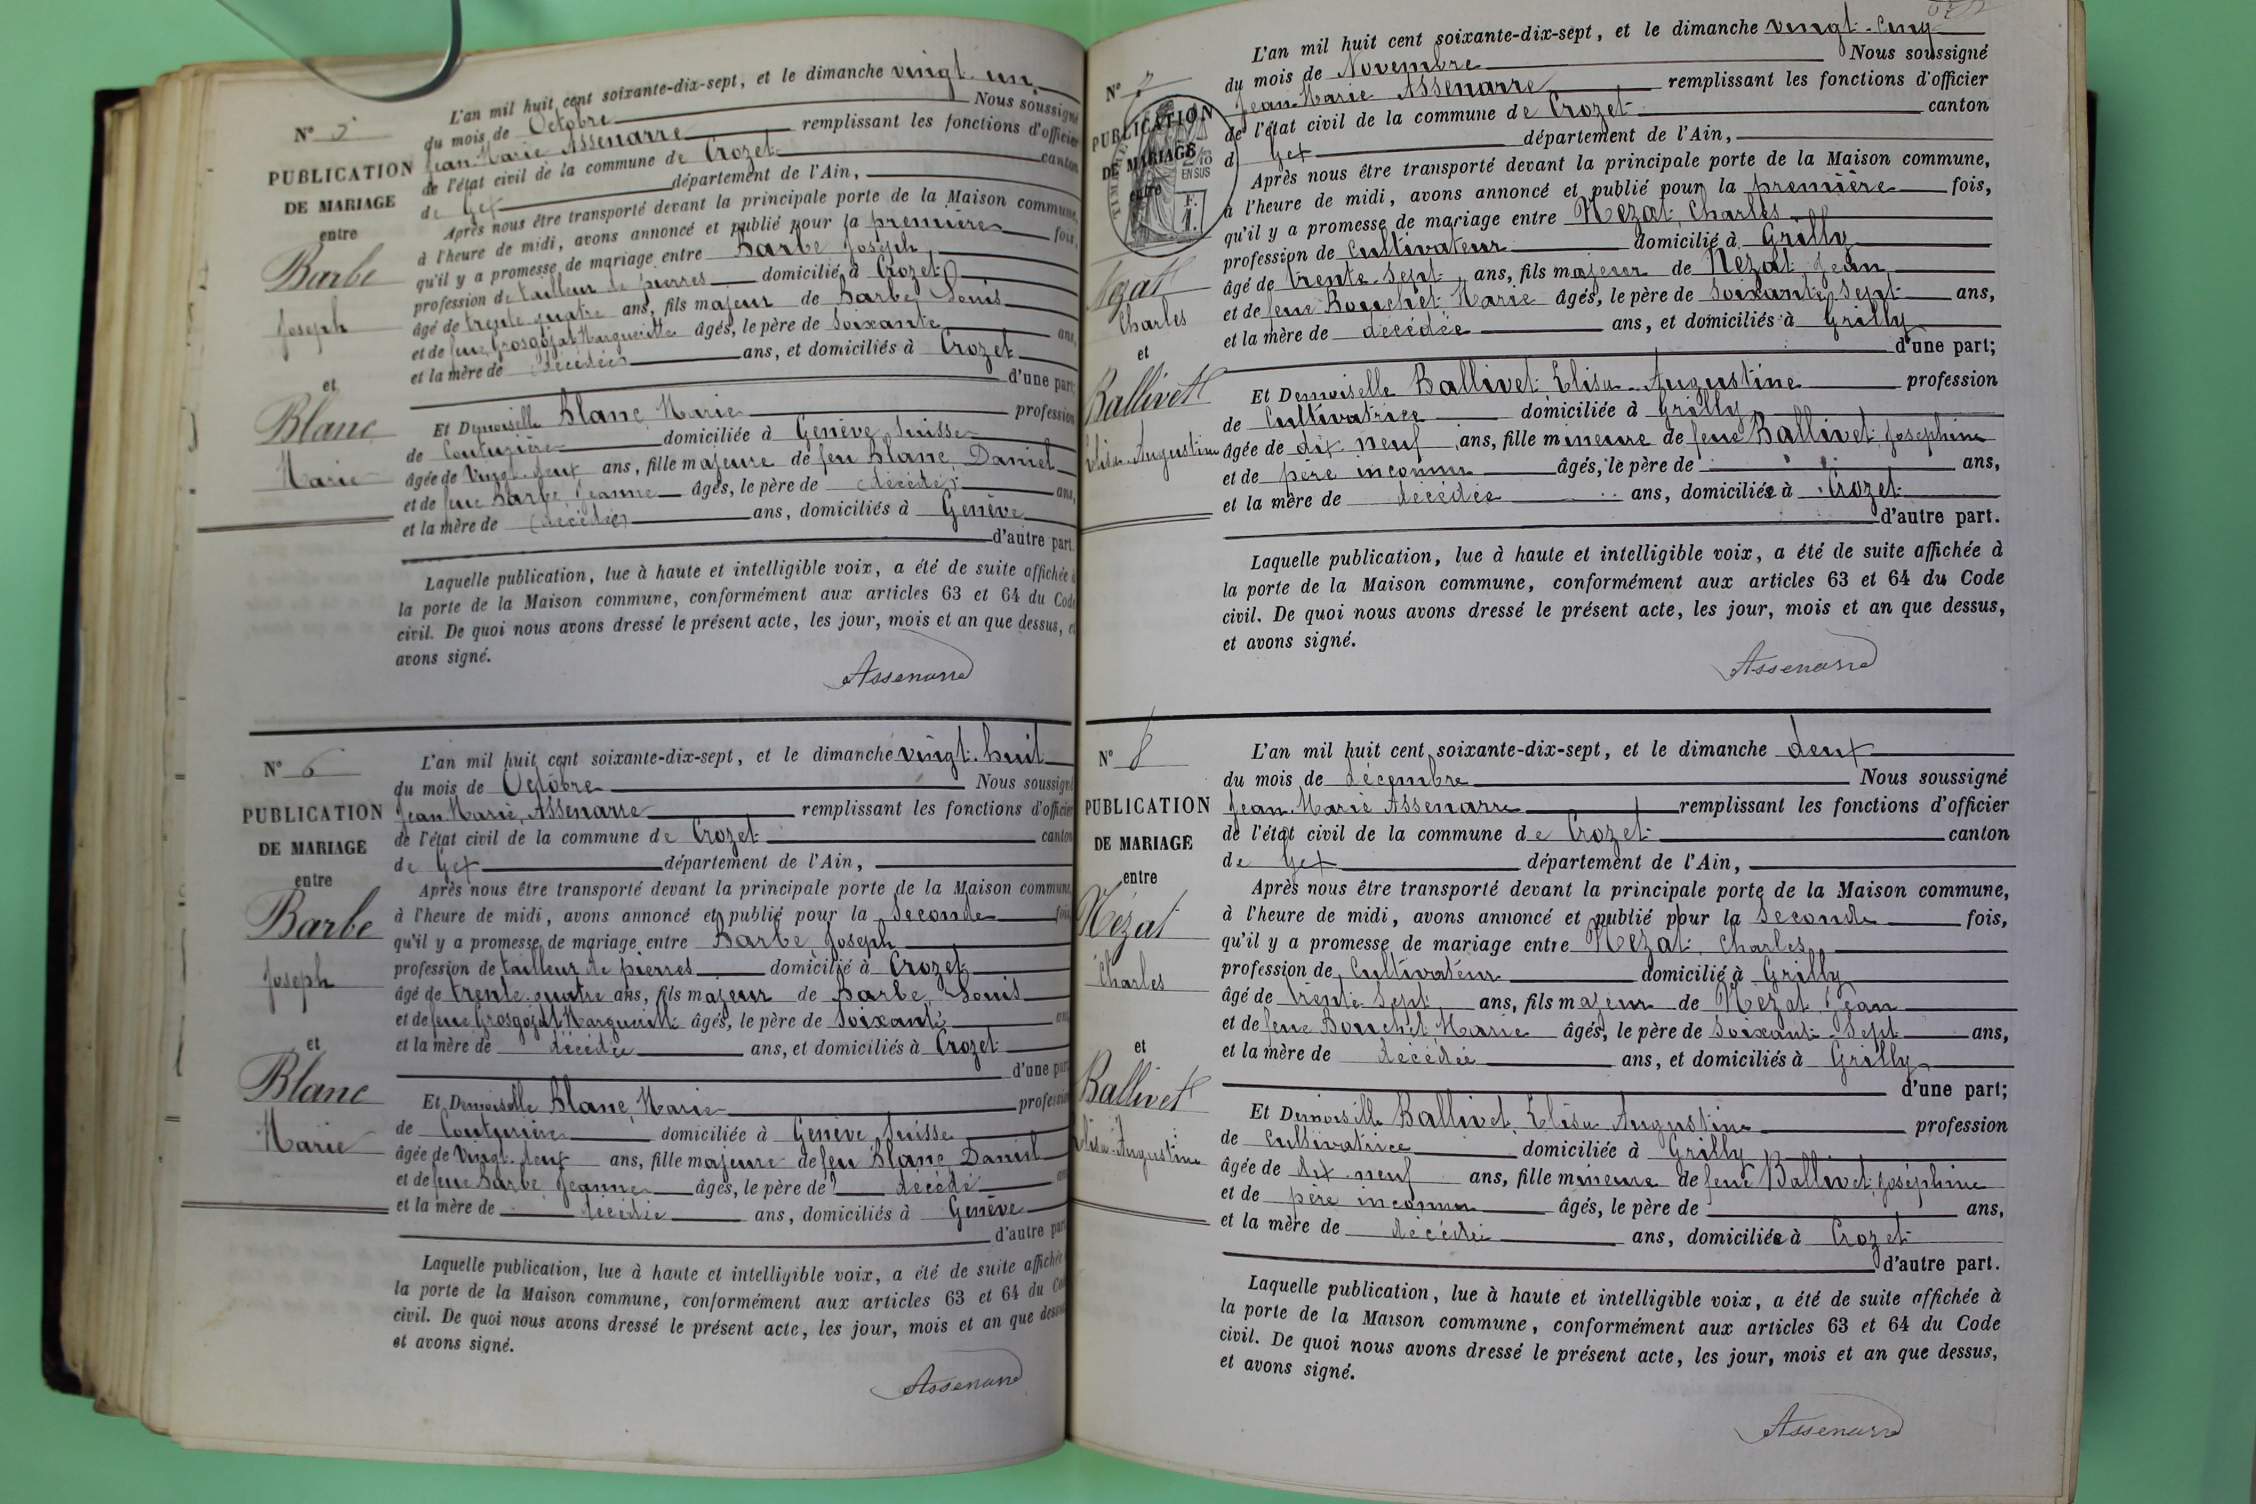 N° 5
PUBLICATION
DE MARIAGE
entre
Barbe
Joseph
et
Blanc
Marie
L'an mil huit cent soixante-dix-sept, et le dimanche vingt-un
du mois de Octobre Nous soussigné
Jean-Marie Assenarre remplissant les fonctions d'officier
de l'état civil de la commune de Crozet canton
de Gex département de l'Ain,
Après nous être transporté devant la principale porte de la Maison commune,
à l'heure de midi, avons annoncé et publié pour la première fois,
qu'il y a promesse de mariage entre Barbe Joseph
profession de tailleur de pierres domicilié à Crozet
âgé de trente quatre ans, fils majeur de Barbe Louis
et de feue Grosgojat Marguerite âgés, le père de Soixante ans,
et la mère de décédée ans, et domiciliés à Crozet
d'une part
Et Demoiselle Blanc Marie profession
de Couturière domiciliée à Genève Suisse
âgée de Vingt-deux ans, fille majeure de feu Blanc Daniel
et de feue Barbe Jeanne âgés, le père de décédé ans,
et la mère de décédée ans, domiciliés à Genève
d'autre part.
Laquelle publication, lue à haute et intelligible voix, a été de suite affichée à
la porte de la Maison commune, conformément aux articles 63 et 64 du Code
civil. De quoi nous avons dressé le présent acte, les jour, mois et an que dessus, et
avons signé.
Assenarre
N° 6
PUBLICATION
DE MARIAGE
entre
Barbe
Joseph
et
Blanc
Marie
L'an mil huit cent soixante-dix-sept, et le dimanche vingt-huit
du mois de Octobre Nous soussigné
Jean-Marie Assenarre remplissant les fonctions d'officier
de l'état civil de la commune de Crozet canton
de Gex département de l'Ain,
Après nous être transporté devant la principale porte de la Maison commune,
à l'heure de midi, avons annoncé et publié pour la seconde fois
qu'il y a promesse de mariage entre Barbe Joseph
profession de tailleur de pierres domicilié à Crozet
âgé de trente quatre ans, fils majeur de Barbe Louis
et de feue Grosgojat Marguerite âgés, le père de Soixante ans
et la mère de décédée ans, et domiciliés à Crozet
d'une part
Et Demoiselle Blanc Marie profession
de Couturière domiciliée à Genève Suisse
âgée de Vingt-deux ans, fille majeure de feu Blanc Daniel
et de feue Barbe Jeanne âgés, le père de décédé ans
et la mère de décédée ans, domiciliés à Genève
d'autre part
Laquelle publication, lue à haute et intelligible voix, a été de suite affichée
la porte de la Maison commune, conformément aux articles 63 et 64 du Code
civil. De quoi nous avons dressé le présent acte, les jour, mois et an que dessus
et avons signé.
Assenarre
N° 7
PUBLICATION
DE MARIAGE
entre
2/10
EN SUS
F.
1.
Nézat
Charles
et
Ballivet
Elisa-Augustine
L'an mil huit cent soixante-dix-sept, et le dimanche vingt-cinq
du mois de Novembre Nous soussigné
Jean-Marie Assenarre remplissant les fonctions d'officier
de l'état civil de la commune de Crozet canton
d Gex département de l'Ain,
Après nous être transporté devant la principale porte de la Maison commune,
à l'heure de midi, avons annoncé et publié pour la première fois,
qu'il y a promesse de mariage entre Nezat Charles
profession de Cultivateur domicilié à Grilly
âgé de trente-sept ans, fils majeur de Nezat Jean
et de feue Bouchet Marie âgés, le père de Soixante-sept ans,
et la mère de décédée ans, et domiciliés à Grilly
d'une part;
Et Demoiselle Ballivet Elisa-Augustine profession
de Cultivatrice domiciliée à Grilly
âgée de dix neuf ans, fille mineure de feue Ballivet Josephine
et de père inconnu âgés, le père de ans,
et la mère de décédée ans, domiciliée à Crozet
d'autre part.
Laquelle publication, lue à haute et intelligible voix, a été de suite affichée à
la porte de la Maison commune, conformément aux articles 63 et 64 du Code
civil. De quoi nous avons dressé le présent acte, les jour, mois et an que dessus,
et avons signé.
Assenarre
N° 8
PUBLICATION
DE MARIAGE
entre
Nézat
Charles
et
Ballivet
Elisa-Augustine
L'an mil huit cent soixante-dix-sept, et le dimanche deux
du mois de décembre Nous soussigné
Jean-Marie Assenarre remplissant les fonctions d'officier
de l'état civil de la commune de Crozet canton
de Gex département de l'Ain,
Après nous être transporté devant la principale porte de la Maison commune,
à l'heure de midi, avons annoncé et publié pour la seconde fois,
qu'il y a promesse de mariage entre Nezat Charles
profession de Cultivateur domicilié à Grilly
âgé de trente-sept ans, fils majeur de Nezat Jean
et de feue Bouchet Marie âgés, le père de Soixante-sept ans,
et la mère de décédée ans, et domiciliés à Grilly
d'une part;
Et Demoiselle Ballivet Elisa Augustine profession
de Cultivatrice domiciliée à Grilly
âgée de dix-neuf ans, fille mineure de feue Ballivet Joséphine
et de père inconnu âgés, le père de ans,
et la mère de décédée ans, domiciliée à Crozet
d'autre part.
Laquelle publication, lue à haute et intelligible voix, a été de suite affichée à
la porte de la Maison commune, conformément aux articles 63 et 64 du Code
civil. De quoi nous avons dressé le présent acte, les jour, mois et an que dessus,
et avons signé.
Assenarre